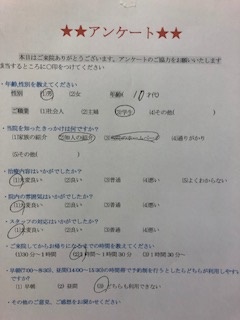 ★★アンケート★★
本日はご来院ありがとうございます。アンケートのご協力をお願いいたします
該当するところに〇印をつけてください
・年齢,性別を教えてください
性別 (1)男 (2)女 年齢( 10 )才代
ご職業 (1)社会人 (2)主婦 (3)学生 (4)その他( )
・当院を知ったきっかけは何ですか?
(1)家族の紹介 (2)知人の紹介 (3)当院のホームページ (4)通りがかり
(5)その他( )
・治療内容はいかがでしたか?
(1)大変良い (2)良い (3)普通 (4)悪い (5)よくわからない
・院内の雰囲気はいかがでしたか?
(1)大変良い (2)良い (3)普通 (4)悪い
・スタッフの対応はいかがでしたか?
(1)大変良い (2)良い (3)普通 (4)悪い
・ご来院してからお帰りになるまでの時間を教えてください
(1)30分～1時間 (2)1時間～1時間30分 (3)1時間30分～
・早朝(7:00～8:30)、昼間(14:00～15:30)の時間帯で予約制を行うとしたらどちらが利用しやすいですか?
(1)早朝 (2)昼間 (3)どちらも利用できない
・その他ご意見、ご感想をお聞かせください